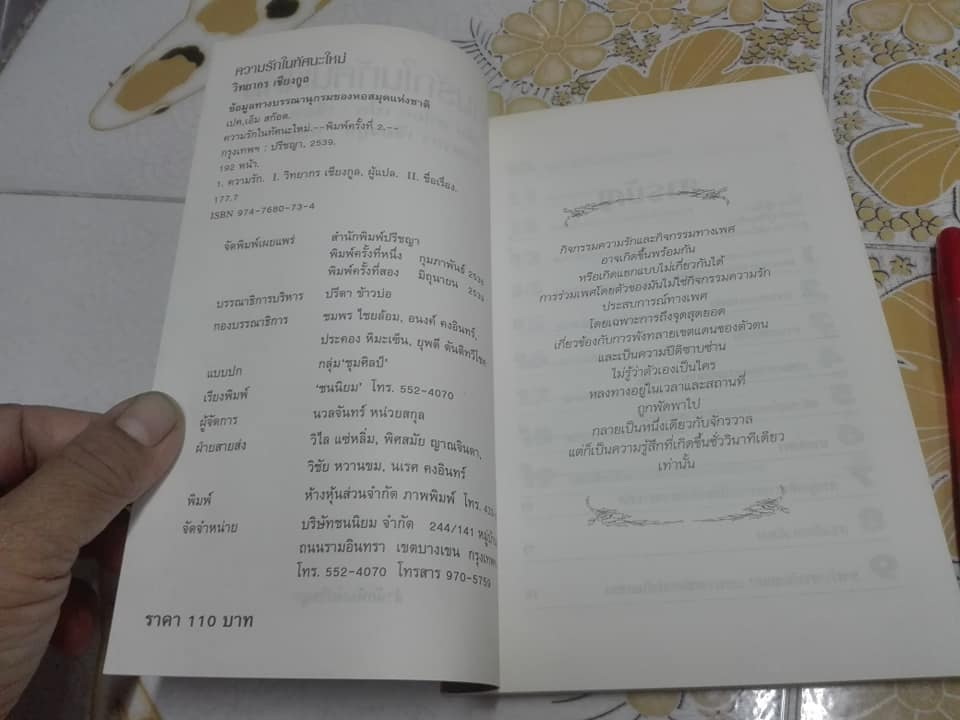 ความรักในทัศนะใหม่
วิทยากร เชียงกูล
ข้อมูลทางบรรณานุกรมของหอสมุดแห่งชาติ
เปค,เอ็ม สก๊อต.
ความรักในทัศนะใหม่.--พิมพ์ครั้งที่ 2.--
กรุงเทพฯ : ปรีชญา, 2539.
192 หน้า.
1. ความรัก. I. วิทยากร เชียงกูล, ผู้แปล. II. ชื่อเรื่อง.
177.7
ISBN 974-7680-73-4
จัดพิมพ์เผยแพร่ สำนักพิมพ์ปรีชญา
พิมพ์ครั้งที่หนึ่ง กุมภาพันธ์ 2536
พิมพ์ครั้งที่สอง มิถุนายน 2539
บรรณาธิการบริหาร ปรีดา ข้าวบ่อ
กองบรรณาธิการ ชมพร ไชยล้อม, อนงค์ คงอินทร์,
ประคอง หิมะเซ็น, ยุพดี ตันติทวีโชค
แบบปก กลุ่ม'ชุมศิลป์'
เรียงพิมพ์ 'ชนนิยม' โทร. 552-4070
ผู้จัดการ นวลจันทร์ หน่วยสกุล
ฝ่ายสายส่ง วิไล แซ่หลิ่ม, พิศสมัย ญาณจินดา,
วิชัย หวานขม, นเรศ คงอินทร์
พิมพ์ ห้างหุ้นส่วนจำกัด ภาพพิมพ์ โทร.
จัดจำหน่าย บริษัทชนนิยม จำกัด 244/141 หมู่บ้าน
ถนนรามอินทรา เขตบางเขน กรุงเทพฯ
โทร. 552-4070 โทรสาร 970-5759
ราคา 110 บาท
กิจกรรมความรักและกิจกรรมทางเพศ
อาจเกิดขึ้นพร้อมกัน
หรือเกิดแยกแบบไม่เกี่ยวกันได้
การร่วมเพศโดยตัวของมันไม่ใช่กิจกรรมความรัก
ประสบการณ์ทางเพศ
โดยเฉพาะการถึงจุดสุดยอด
เกี่ยวข้องกับการพังทลายเขตแดนของตัวตน
และเป็นความปิติซาบซ่าน
ไม่รู้ว่าตัวเองเป็นใคร
หลงทางอยู่ในเวลาและสถานที่
ถูกพัดพาไป
กลายเป็นหนึ่งเดียวกับจักรวาล
แต่ก็เป็นความรู้สึกที่เกิดขึ้นชั่ววินาทีเดียว
เท่านั้น